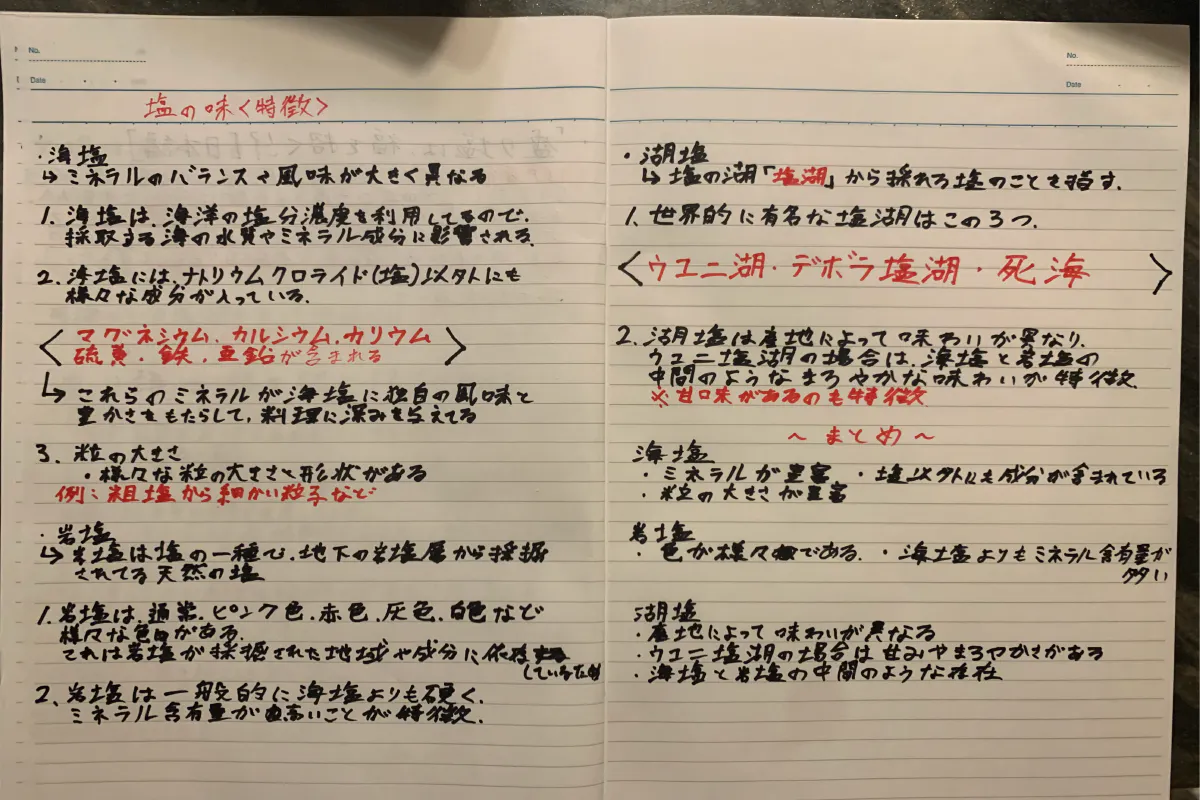 No.
Date
塩の味<特徴>
・海塩
↳ ミネラルのバランスや風味が大きく異なる
1. 海塩は、海洋の塩分濃度を利用してるので、
採取する海の水質やミネラル成分に影響される。
2. 海塩には、ナトリウムクロライド(塩)以外にも
様々な成分が入っている。
<マグネシウム、カルシウム、カリウム
硫黄、鉄、亜鉛が含まれる>
↳ これらのミネラルが海塩に独自の風味と
豊かさをもたらして、料理に深みを与えてる
3. 粒の大きさ
・様々な粒の大きさと形状がある
例:粗塩から細かい粒子など
・岩塩
↳ 岩塩は塩の一種で、地下の岩塩層から採掘
されてる天然の塩
1. 岩塩は、通常、ピンク色、赤色、灰色、白色など
様々な色がある。
これは岩塩が採掘された地域や成分に依存
している為
2. 岩塩は一般的に海塩よりも硬く、
ミネラル含有量が高いことが特徴。
No.
Date
・湖塩
↳ 塩の湖「塩湖」から採れる塩のことを指す。
1. 世界的に有名な塩湖はこの3つ。
<ウユニ湖・デボラ塩湖・死海>
2. 湖塩は産地によって味わいが異なり、
ウユニ塩湖の場合は、海塩と岩塩の
中間のようなまろやかな味わいが特徴
※甘味があるのも特徴
～まとめ～
海塩
・ミネラルが豊富 ・塩以外にも成分が含まれている
・粒の大きさが豊富
岩塩
・色が様々である。 ・海塩よりもミネラル含有量が
多い
湖塩
・産地によって味わいが異なる
・ウユニ塩湖の場合は甘みやまろやかさがある
・海塩と岩塩の中間のような存在